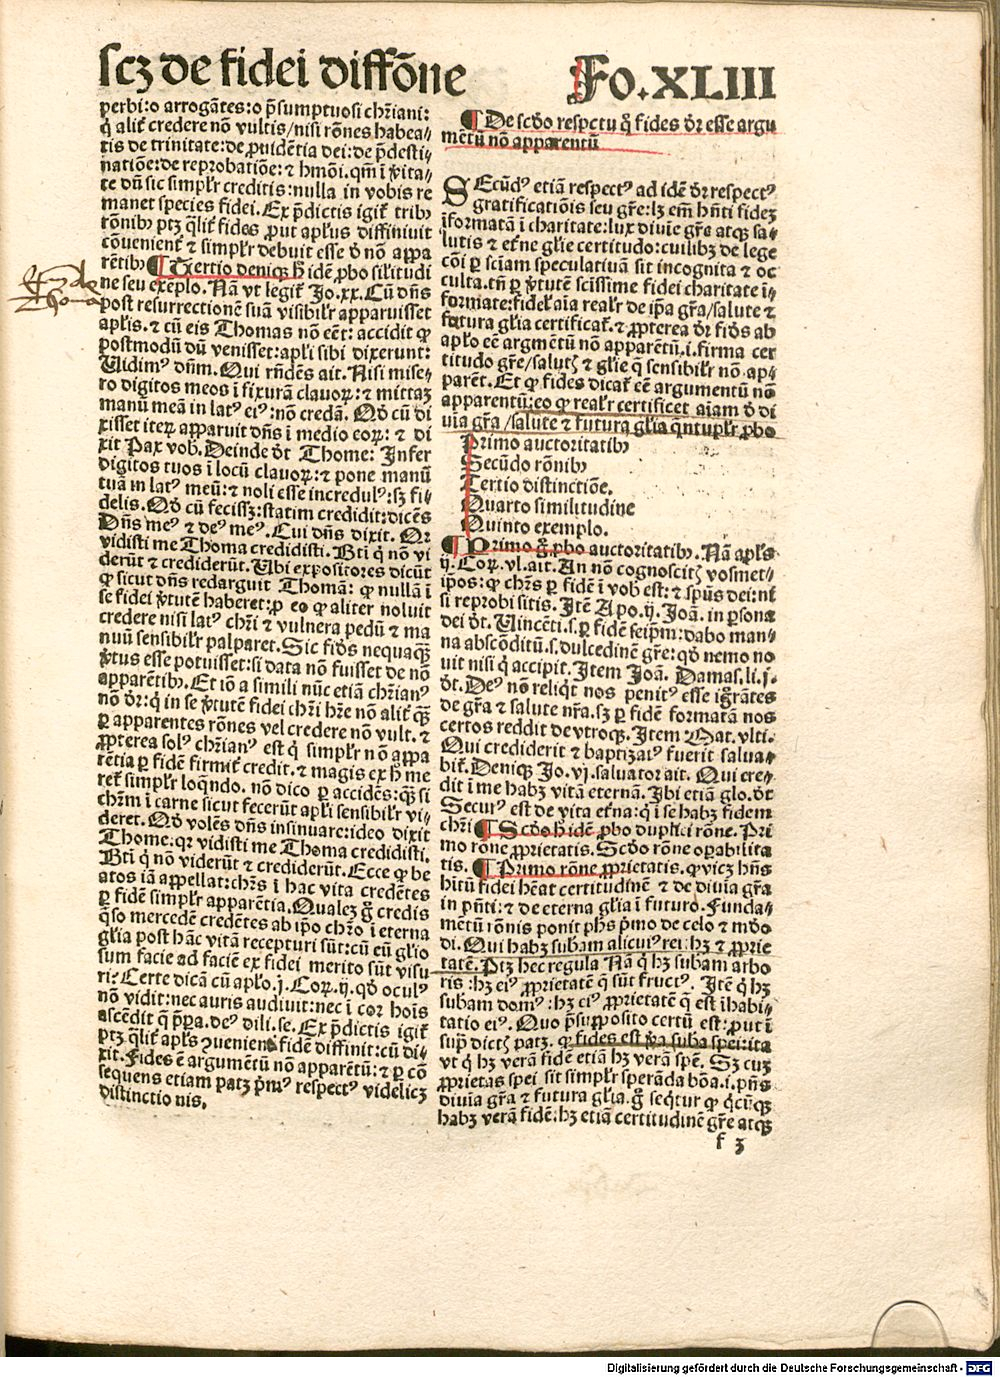 ſcꝫ de fidei diffōne
Fo.XLIII
perbi:o arrogātes:o p̄ſumptuoſi chr̄iani:
q̇ alit̄ credere nō vultis/niſi rōnes habea⸗
tis de trinitate:de ꝓuidētia dei:de p̄deſti⸗
natiōe:de reprobatiōe:ꝛ hmōi.qm̄ ī v̄ita⸗
te dū ſic ſimplr̄ creditis:nulla in vobis re
manet ſpecies fidei.Ex p̄dictis igit̄ tribꝰ
rōnibꝫ ptꝫ q̄lit̄ fides ꝓut apl̄us diffiniuit
cōuenient̄ ꝛ ſimplr̄ debuit eſſe đ nō appa
rētibꝫ ¶ Tertio deniqꝫ h̄ idē ꝓbo ſil̄itudi
ne ſeu exēplo. Nā vt legit̄ Jo.xx. Cū dn̄s
poſt reſurrectionē ſuā viſibilr̄ apparuiſſet
apl̄is.ꝛ cū eis Thomas nō eēt: accidit ꝙ
poſtmodū dū veniſſet:apl̄i ſibi dixerunt:
Uidimꝰ dn̄m. Qui rn̄dēs ait. Niſi miſe⸗
ro digitos meos ī fixurā clauoꝝ: ꝛ mittaꝫ
manū meā in latꝰ eiꝰ:nō credā. Qđ cū di
xiſſet iteꝝ apparuit dn̄s ī medio eoꝝ: ꝛ di
xit Pax vob. Deinde đt Thome: Infer
digitos tuos ī locū clauoꝝ: ꝛ pone manū
tuā in latꝰ meū: ꝛ noli eſſe incredulꝰ:ſꝫ fi⸗
delis. Qđ cū feciſſꝫ:ſtatim credidit:dicēs
Dn̄s meꝰ ꝛ deꝰ meꝰ. Cui dn̄s dixit. Qꝛ
vidiſti me Thoma credidiſti. Bt̄i q̇ nō vi
derūt ꝛ crediderūt. Ubi expoſitores dicūt
ꝙ ſicut dn̄s redarguit Thomā: ꝙ nullā ī
ſe fidei v̄tutē haberet:ꝓ eo ꝙ aliter noluit
credere niſi latꝰ chr̄i ꝛ vulnera pedū ꝛ ma
nuū ſenſibilr̄ palparet. Sic fiđs nequaꝙ̄
v̄tus eſſe potuiſſet:ſi data nō fuiſſet de nō
apparētibꝫ. Et iō a ſimili nūc etiā chr̄ianꝰ
nō đr: q̇ in ſe v̄tutē fidei chr̄i hr̄e nō alit̄ ꝙ̄
ꝑ apparentes rōnes vel credere nō vult. ꝛ
ꝓpterea ſolꝰ chr̄ianꝰ eſt q̇ ſimplr̄ nō appa
rētia ꝑ fidē firmit̄ credit. ꝛ magis ex h̄ me
ret̄ ſimplr̄ loqn̄do. nō dico ꝑ accidēs:ꝙ̄ ſi
chr̄m ī carne ſicut fecerūt apl̄i ſenſibilr̄ vi⸗
deret. Qđ volēs dn̄s inſinuare:ideo dixit
Thome.qꝛ vidiſti me Thoma credidiſti.
Bt̄i q̇ nō viderūt ꝛ crediderūt. Ecce ꝙ be
atos iā appellat:chr̄s ī hac vita credētes
ꝑ fidē ſimplr̄ apparētia. Qualeꝫ g̊ credis
q̄ſo mercedē credētes ab ip̄o chr̄o ī eterna
gl̄ia poſt hāc vitā recepturi ſūt:cū eū glio
ſum facie ad faciē ex fidei merito ſūt viſu
ri: Certe dicā cū apl̄o.j. Coꝝ.ij. qđ oculꝰ
nō vidit:nec auris audiuit:nec ī cor hoīs
aſcēdit q̄ p̄pa.deꝰ dili.ſe. Ex p̄dictis igit̄
ptꝫ q̄lit̄ apl̄s ꝯuenient̄ fidē diffinit:cū di⸗
xit. Fides ē argumētū nō apparētū: ꝛ ꝑ cō
ſequens etiam patꝫ p̄mꝰ reſpectꝰ videlicꝫ
diſtinctionis.
¶ De ſcđo reſpctu q̊ fides đr eſſe argu
mētū nō apparentū
SEcūđꝰ etiā reſpectꝰ ad idē đr reſpectꝰ
gratificatiōis ſeu gr̄e: lꝫ em̄ hn̄ti fideꝫ
īformatā ī charitate: lux diuīe gr̄e atqꝫ ſa⸗
lutis ꝛ et̄ne gl̄ie certitudo:cuilibꝫ de lege
cōi ꝑ ſciam ſpeculatiuā ſit incognita ꝛ oc
culta.tn̄ ꝑ v̄tutē ſciſſime fidei charitate ī⸗
formate: fidel̄ aīa realr̄ de ip̄a gr̄a/ſalute ꝛ
futura gl̄ia certificat̄. ꝛ ꝓpterea đr fiđs ab
apl̄o eē argm̄tū nō apparētū.i.firma cer
titudo gr̄e/ſalutꝭ ꝛ gl̄ie q̄ ſenſibilr̄ nō ap⸗
parēt. Et ꝙ fides dicat̄ eē argumentū nō
apparentū:eo ꝙ realr̄ certificet aīam đ di
uīa gr̄a /ſalute ꝛ futura gl̄ia q̄ntuplr̄ ꝓbo
Primo auctoritatibꝫ
Secūdo rōnibꝫ
Tertio diſtinctiōe.
Quarto ſimilitudine
Quinto exemplo.
¶ Primo g̊ ꝓbo auctoritatibꝫ. Nā apl̄s
ij. Coꝝ. vl. ait. An nō cognoſcitꝭ voſmet⸗
ip̄os: ꝙ chr̄s ꝑ fidē ī vob eſt: ꝛ ſpūs dei:ni
ſi reprobi ſitis. Itē Apo.ij. Joā. in ꝑſona
dei đt. Uincēti.ſ.ꝑ fidē ſeip̄m:dabo man⸗
na abſcōditū.ſ.dulcedinē gr̄e: qđ nemo no
uit niſi q̇ accipit. Item Joā. Damaſ.li.j.
đt. Deꝰ nō reliq̇t nos penitꝰ eſſe ig̊rātes
de gr̄a ꝛ ſalute nr̄a.ſꝫ ꝑ fidē formatā nos
certos reddit de vtroqꝫ. Item Mat. vlti.
Qui crediderit ꝛ baptizatꝰ fuerit ſalua⸗
bit̄. Deniqꝫ Jo. vj. ſaluator ait. Qui cre⸗
dit ī me habꝫ vitā eternā. Ibi etiā glo. đt
Securꝰ eſt de vita et̄na: q̇ ī ſe habꝫ fidem
chr̄i ¶ Scđo h̄ idē ꝓbo duplici rōne. Pri
mo rōne ꝓprietatis. Scđo rōne oꝑabilita
tis. ¶ Primo rōne ꝓprietatis. ꝙ vicꝫ hn̄s
hitū fidei hēat certitudinē ꝛ de diuīa gr̄a
in p̄nti: ꝛ de eterna gl̄ia ī futuro. Funda⸗
mētū rōnis ponit ph̄s p̄mo de celo ꝛ mūdo
di. Qui habꝫ ſubam alicuiꝰ rei: hꝫ ꝛ ꝓprie
tatē. Ptꝫ hec regula Nā q̇ hꝫ ſubam arbo
ris : hꝫ eiꝰ ꝓprietatē q̄ ſūt fructꝰ. Itē q̇ hꝫ
ſubam domꝰ : hꝫ eiꝰ ꝓprietatē q̄ eſt īhabi⸗
tatio eiꝰ. Quo p̄ſuppoſito certū eſt: ꝓut ī
ſup̄ dictꝭ patꝫ. ꝙ fides eſt v̄a ſuba ſpei:ita
vt q̇ hꝫ verā fidē etiā hꝫ verā ſpē. Sꝫ cuꝫ
ꝓprietas ſpei ſit ſimplr̄ ſperāda bōa.i.pn̄s
diuīa gr̄a ꝛ futura gl̄ia. g̊ ſeq̇tur ꝙ q̇cūqꝫ
habꝫ verā fidē: hꝫ etiā certitudinē gr̄e atqꝫ
f 3
Digitalisierung gefördert durch die Deutsche Forschungsgemeinschaft - DFG